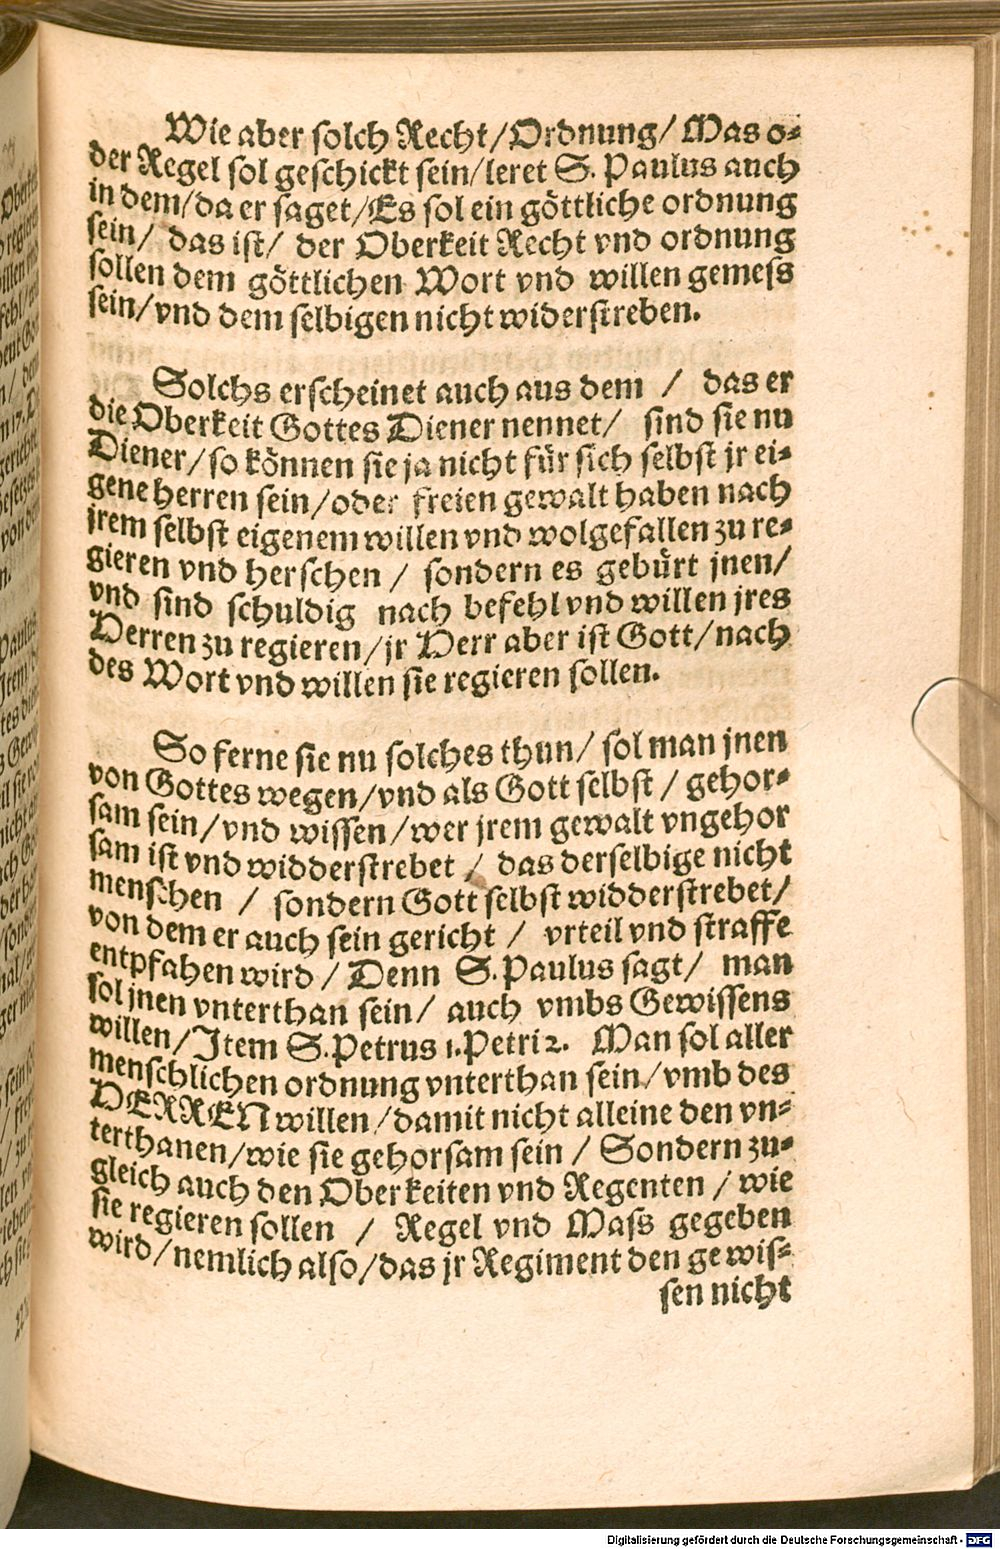 Wie aber solch Recht/Ordnung/ Mas o-
der Regel sol geschickt sein/leret S. Paulus auch
in dem/da er saget/Es sol ein göttliche ordnung
sein/ das ist/ der Oberkeit Recht vnd ordnung
sollen dem göttlichen Wort vnd willen gemess
sein/vnd dem selbigen nicht widerstreben.
Solchs erscheinet auch aus dem / das er
die Oberkeit Gottes Diener nennet/ sind sie nu
Diener/so können sie ja nicht für sich selbst jr ei-
gene herren sein/oder freien gewalt haben nach
jrem selbst eigenem willen vnd wolgefallen zu re-
gieren vnd herschen / sondern es gebürt jnen/
vnd sind schuldig nach befehl vnd willen jres
Herren zu regieren/jr Herr aber ist Gott/nach
des Wort vnd willen sie regieren sollen.
So ferne sie nu solches thun/ sol man jnen
von Gottes wegen/vnd als Gott selbst / gehor-
sam sein/vnd wissen/wer jrem gewalt vngehor
sam ist vnd widderstrebet / das derselbige nicht
menschen / sondern Gott selbst widderstrebet/
von dem er auch sein gericht / vrteil vnd straffe
entpfahen wird/ Denn S. Paulus sagt/ man
sol jnen vnterthan sein/ auch vmbs Gewissens
willen/Item S. Petrus 1. Petri 2. Man sol aller
menschlichen ordnung vnterthan sein/vmb des
HERREN willen/damit nicht alleine den vn-
terthanen/wie sie gehorsam sein / Sondern zu-
gleich auch den Oberkeiten vnd Regenten / wie
sie regieren sollen / Regel vnd Mass gegeben
wird/nemlich also/das jr Regiment den gewis-
sen nicht
Digitalisierung gefördert durch die Deutsche Forschungsgemeinschaft - DFG